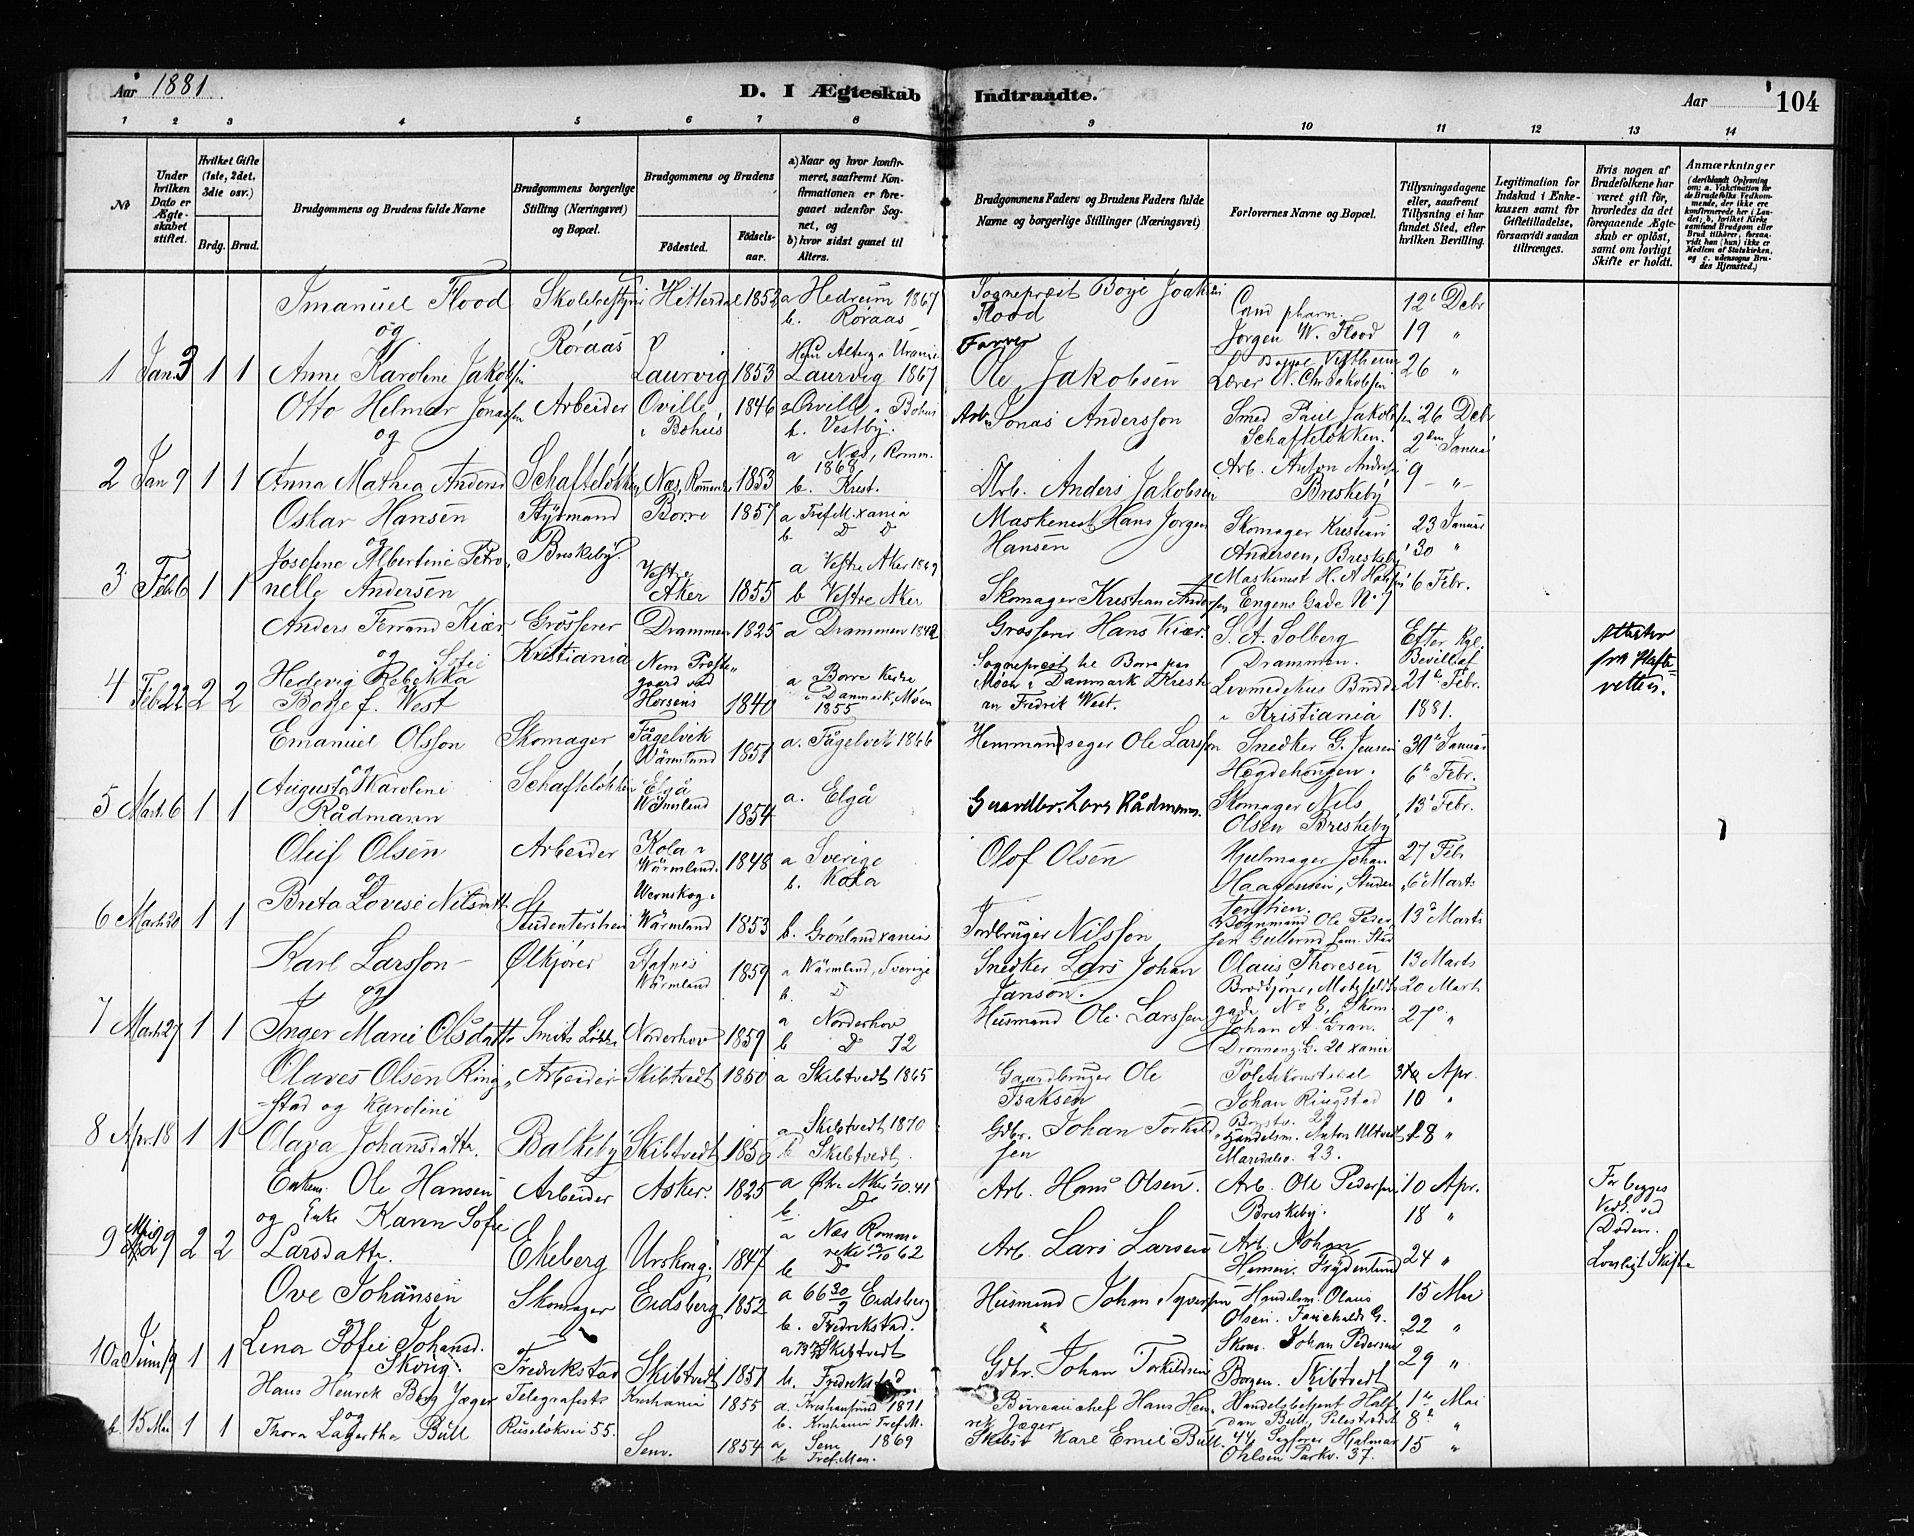 Aar 1881
D. I Ægteskab Indtraadte.
Aar
104
1 2 3 4 5 6 7 8 9 10 11 12 13 14
No
Under hvilken Dato er Ægteskabet stiftet.
Hvilket Gifte (1ste, 2det, 3die osv.)
Brdg. Brud.
Brudgommens og Brudens fulde Navne
Brudgommens borgerlige Stilling (Næringsvei) og Bopæl.
Brudgommens og Brudens
Fødested.
Fødselsaar.
a) Naar og hvor konfirmeret, saafremt Konfirmationen er foregaaet udenfor Sognet, og
b) hvor sidst gaaet til Alters.
Brudgommens Faders og Brudens Faders fulde Navne og borgerlige Stillinger (Næringsvei)
Forlovernes Navne og Bopæl.
Tillysningsdagene eller, saafremt Tillysning ei har fundet Sted, efter hvilken Bevilling.
Legitimation for Indskud i Enkekassen samt for Giftetilladelse, forsaavidt saadan tiltrænges.
Hvis nogen af Brudefolkene har været gift før, hvorledes da det foregaaende Ægteskab er opløst, samt om lovligt Skifte er holdt.
Anmærkninger
(deriblandt Oplysning om: a. Vakcination for de Brudefolks Vedkommende, der ikke ere konfirmerede her i Landet; b. hvilket Kirkesamfund Brudgom eller Brud tilhører, forsaavidt han (hun) ikke er Medlem af Statskirken, og c. udensogns Brudes Hjemsted.)
1 Jan 3 1 1
Imanuel Flood
og
Anne Karoline Jakobsen
Skolebestyrer
Røraas
Hitterdal 1852
Laurvig 1853
a Hedrum 1867
b. Røraas
Laurvig 1867
Sogneprest Boye Joakim
Flood
Farver
Ole Jakobsen
Cand pharm.
Jørgen W. Flood
Lærer N. Chr Jakobsen
12 Debr
19 "
26 "
2 Jan 9 1 1
Otto Helmer Jonassen
og
Anna Mathea Andersd
Arbeider
Schafteløkken
Oville, 1846
i Bohus
Næs, Romerike 1853
a Oville i Bohus
b. Vestby.
a Næs, Romm.
1868
b. Krist.
Arb. Jonas Andersson
Arb. Anders Jakobsen
Smed Paul Jakobsen
Schafteløkken.
Arb. Anton Andresen
Breskeby
26 Debr
2den Januar
9 - " -
3 Feb 6 1 1
Oskar Hansen
og
Josefine Albertine Petro-
nelle Andersen
Styrmand
Breskeby
Borre 1857
Vestre Aker 1855
a Tref.M. xania
b D D
a Vestre Aker 1869
b Vestre Aker
Maskenest Hans Jørgen
Hansen
Skomager Kristian Andersen
Skomager Kristian
Andersen, Breskeby
Maskenest H. A Hansen
Engens Gade No 7
23 Januar
30 "
6 Febr.
4 Feb 22 2 2
Anders Ferrand Kiær
og Sofie
Hedevig Rebekka
Boye f. West
Grosserer
Kristiania
Drammen 1825
Nem Præste-
gaard ved
Horsens 1840
a Drammen 1842
a Borre Kirke
i Danmark, Møen
1855
Grosserer Hans Kiær
Sogneprest til Borre paa
Møen i Danmark Kristi-
an Fredrik West.
S. A. Solberg
Drammen.
Livmedikus Budde
i Kristiania
Efter Kgl.
Bevill. af
21de Febr.
1881.
Attester
fra Skifte-
retten.
5 Marts 6 1 1
Emanuel Olsson
og
Augusta Karoline
Rådmann
Skomager
Schafteløkken
Fågelvik
Wärmland 1851
Elgå
Wärmland 1854
a. Fågelvik 1866
a. Elgå
Hemmandseger Ole Larsson
Gaardbr. Lars Rådmann.
Snedker G. Jensen
Hægdehougen.
Skomager Nils
Olsen Breskeby
30 Januar
6 Febr.
13 Febr.
6 Marts 20 1 1
Oluf Olsen
og
Breta Lovise Nilsdatt
Arbeider
Studenterstien
Kola i
Wärmland. 1848
Wärmland 1853
a Sverige
b. Kola
b. Grønland xania
Olof Olsen
Jordbruger Nilsson
Hjulmager Johan
Haagensen, Studen-
terstien.
27 Feb
6 Marts
13 Marts
7 Marts 27 1 1
Karl Larsson
og
Inger Marie Olsdatt
Ølkjører
Smits Løkke
Stafnes
Wärmland 1859
Norderhov 1859
a Wärmland, Sverige
b. D
a Norderhov
b D 72
Snedker Lars Johan
Janson.
Husmand Ole Larssen
Olaus Thoresen
Brødkjører, Motzfeldts
gade No E, Skom.
Johan A. Gran.
Dronnengs G. 20 xania
13 Marts
20 Marts
27 "
8 Apr. 18 1 1
Olaves Olsen Ring-
stad og Karoline
Olava Johansdatte.
Arbeider
Balkeby
Skibtvedt 1850
Skibtvedt 1850
a Skibtvedt 1865
a Skibtvedt 1870
b Skibtvedt.
Gaardbruger Ole
Isaksen
Gdbr. Johan Torkild-
sen
Politikonstabel
Johan Ringstad
Handelsm. Anton Ultvedt
Maridalsv. 23.
Apr.
10 "
18 "
9 29 2 2
Enkem. Ole Hansen
og Enke Karen Sofie
Larsdatte.
Arbeider
Ekeberg
Asker. 1825
Urskoug. 1847
a Østre Aker 1/10.41
b. D
a Næs Romme-
rike 12/10 62
b D
Arb. Hans Olsen.
Arb. Lars Larsen
Arb. Ole Pedersen
Breskeby.
Arb. Johan
Hansen. Frydenlund
10 Apr.
18 "
24 "
For begges
Vedk. ved
Døden.
Lovligt Skifte
10a Juni 19 1 1
Ove Johansen
og
Lena Sofie Johansd.
Skoug.
Skomager
Fredrikstad
Eidsberg 1852
Skibtvedt 1851
a 66 30/9 Eidsberg
b. Fredrikstad.
Skibtvedt
b. Fredrikstad
Husmand Johan Syversen
Gdbr. Johan Torkildsen
Handelsm. Olaus
Olsen. Fauchalds G.
Skom. Johan Pedersen
Borgen. Skibtvedt
15 Mai
22 "
29 "
b. 15 Mai 1 1
Hans Henrik Berg Jæger
og
Thora Lagertha Bull
Telegrafist
Ruseløkvei 55.
Kristiania 1855
Sem. 1854
a. Kristiansund 1871
b. Kristiania Tref M.
a Sem 1869
b Tref.Men.
Bureauchef Hans Hen-
rik Jæger
Skibst Karl Emil Bull.
Handelsbetjent Half-
dan Bull, Pilestrædet
44. Hjalmar
Ohlsen Parkv. 37.
1ste Mai
8de "
15 "